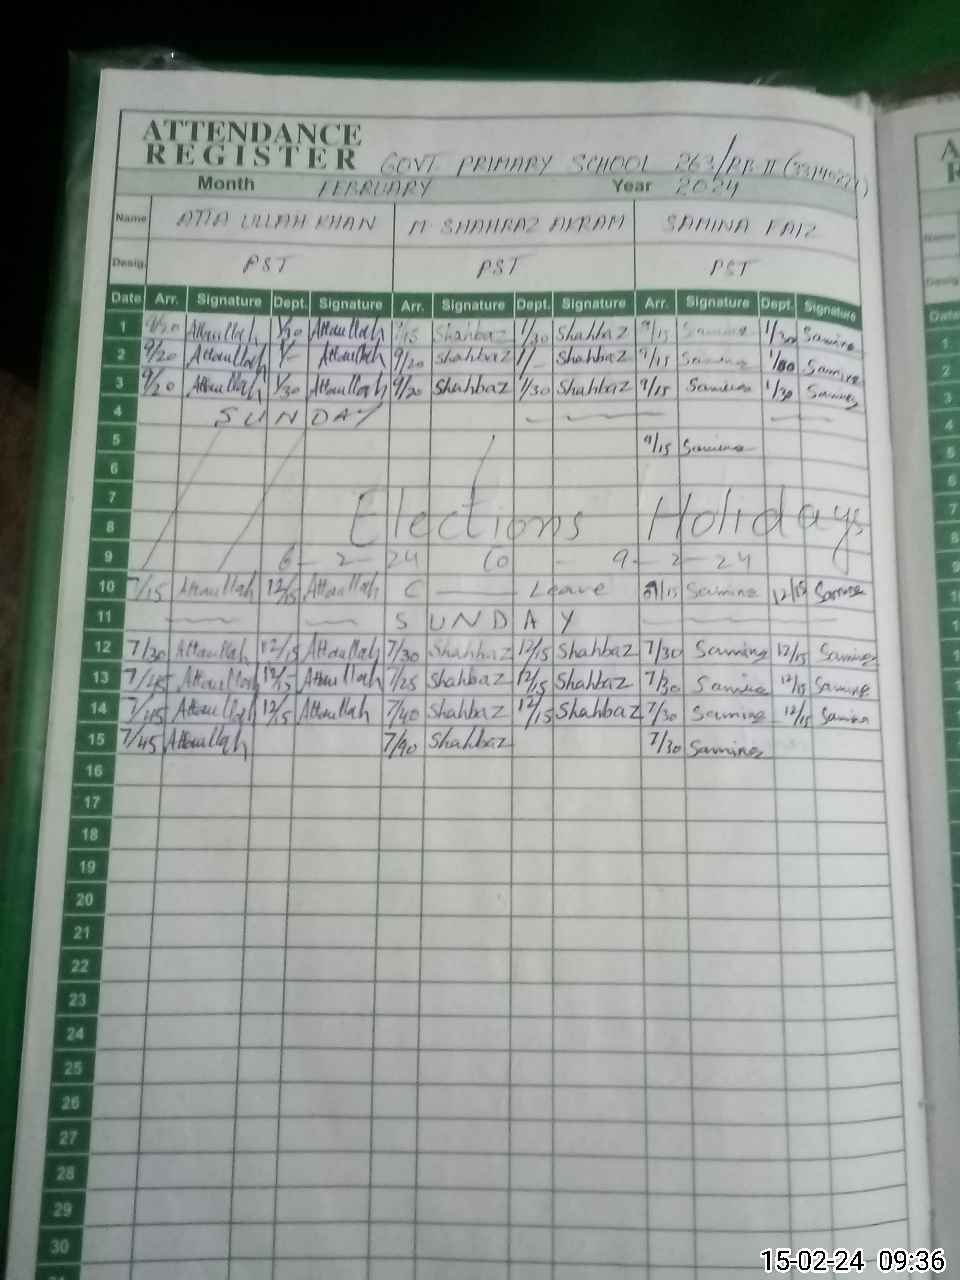 ATTENDANCE
REGISTER GOVT. PRIMARY SCHOOL 263/RB II
Month FEBRUARY Year 2024
Name ATTA ULLAH KHAN M SHAHBAZ AKRAM SAMINA FAIZ
Desig. PST PST PST
Date Arr. Signature Dept. Signature Arr. Signature Dept. Signature Arr. Signature Dept. Signature
1 9/20 Attaullah 1/30 Attaullah 9/15 Shahbaz 1/30 Shahbaz 9/15 Samina 1/30 Samina
2 9/20 Attaullah 1/- Attaullah 9/20 Shahbaz 1/- Shahbaz 9/15 Samina Samina
3 9/20 Attaullah 1/30 Attaullah 9/20 Shahbaz 1/30 Shahbaz 9/15 Samina 1/30 Samina
4 SUNDAY
5 9/15 Samina
6
7
8 Elections Holidays
9 6-2-24 to - 9-2-24
10 7/15 Attaullah 12/15 Attaullah C — Leave Samina 12/15 Samina
11 SUNDAY
12 7/30 Attaullah 12/15 Attaullah 7/30 Shahbaz 12/15 Shahbaz 7/30 Samina 12/15 Samina
13 7/45 Attaullah 12/15 Attaullah 7/25 Shahbaz 12/15 Shahbaz 7/30 Samina 12/15 Samina
14 7/45 Attaullah 12/15 Attaullah 7/40 Shahbaz 12/15 Shahbaz 7/30 Samina 12/15 Samina
15 7/45 Attaullah 7/40 Shahbaz 7/30 Samina
16
17
18
19
20
21
22
23
24
25
26
27
28
29
30
15-02-24 09:36